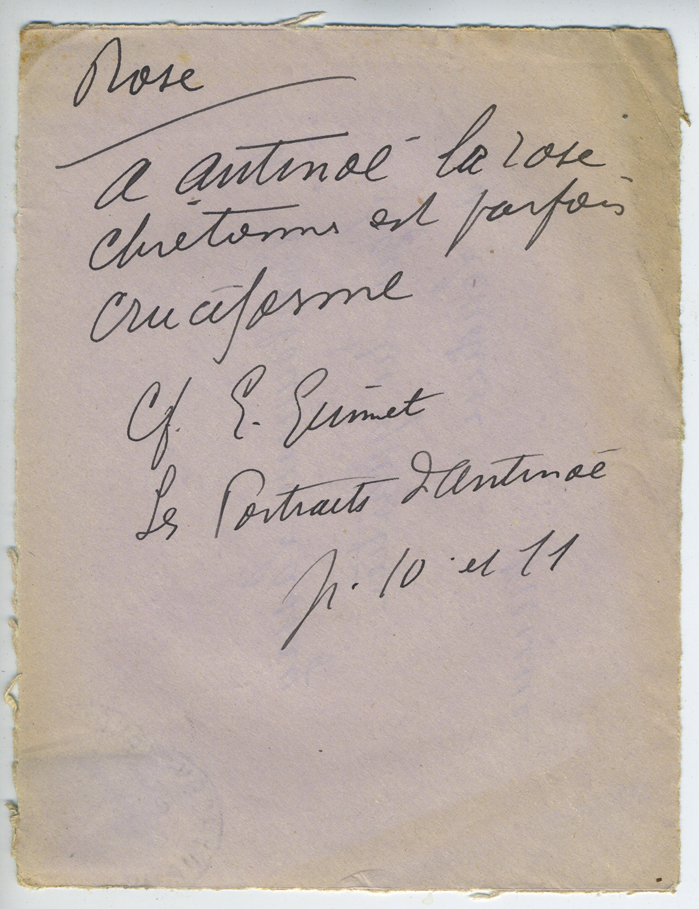 Rose
A Antinoë la rose
chrétienne est parfois
cruciforme
Cf. E. Guimet
Les Portraits d'Antinoë
p. 10 et 11